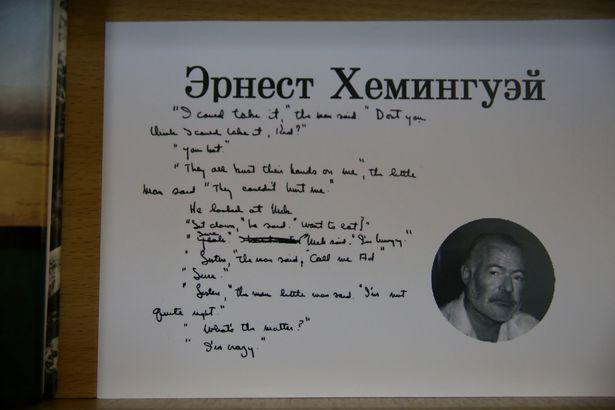 Эрнест Хемингуэй
"I could take it," the man said. "Dont you
think I could take it, kid?"
"You bet."
"They all bust their hands on me," the little
man said "They couldn't hurt me."
He looked at Nick
"Sit down," he said. "Want to eat?"
"Sure." "Nick said. "I'm hungry."
"Listen," the man said, "Call me Ad"
"Sure."
"Listen," the man little man said. "I'm not
quite right."
"What's the matter?"
"I'm crazy."